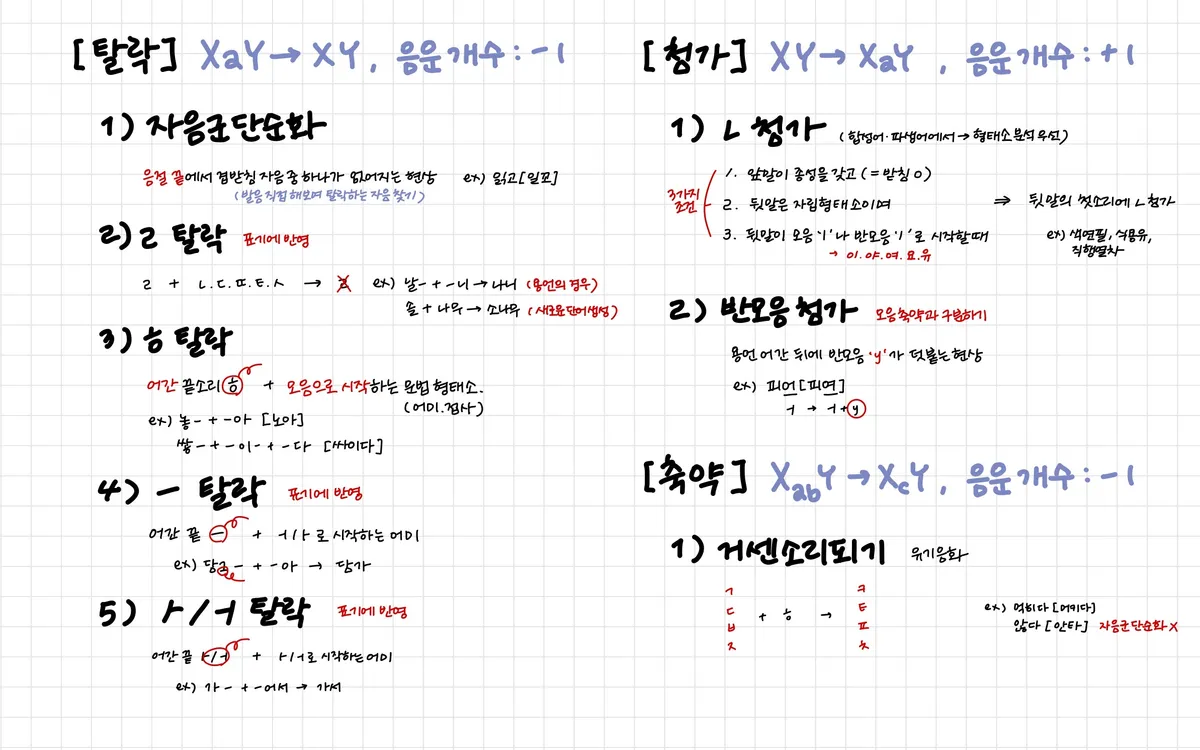 [탈락] XaY → XY, 음운 개수 : -1
1) 자음군단순화
음절 끝에서 겹받침 자음 중 하나가 없어지는 현상 ex) 읽고[일꼬]
(발음 직접 해보며 탈락하는 자음 찾기)
2) ㄹ 탈락 표기에 반영
ㄹ + ㄴ.ㄷ.ㅁ.ㅌ.ㅅ → ㄹ ex) 날- + -니 → 나니 (용언의 경우)
솔 + 나무 → 소나무 (새로운 단어 생성)
3) ㅎ 탈락
어간 끝소리 ㅎ + 모음으로 시작하는 문법 형태소.
(어미.접사)
ex) 놓- + -아 [노아]
쌓- + -이- + -다 [싸이다]
4) ㅡ 탈락 표기에 반영
어간 끝 ㅡ + ㅓ/ㅏ로 시작하는 어미
ex) 담그- + -아 → 담가
5) ㅏ/ㅓ 탈락 표기에 반영
어간 끝 ㅏ/ㅓ + ㅏ/ㅓ로 시작하는 어미
ex) 가- + -어서 → 가서
[첨가] XY → XaY, 음운 개수 : +1
1) ㄴ 첨가 (합성어·파생어에서 → 형태소 분석 우선)
3가지 조건
1. 앞말이 종성을 갖고 (= 받침 O)
2. 뒷말은 자립형태소이며
3. 뒷말이 모음 'ㅣ'나 반모음 'ㅣ'로 시작할 때
→ 이.야.여.요.유
⇒ 뒷말의 첫소리에 ㄴ 첨가
ex) 색연필, 식용유,
직행열차
2) 반모음 첨가 모음축약과 구분하기
용언 어간 뒤에 반모음 'y'가 덧붙는 현상
ex) 피어[피여]
ㅓ → ㅓ+y
[축약] XabY → XcY, 음운 개수 : -1
1) 거센소리되기 유기음화
ㄱ ㅋ
ㄷ ㅌ
+ ㅎ →
ㅂ ㅍ
ㅈ ㅊ
ex) 먹히다 [머키다]
않다 [안타] 자음군단순화 X